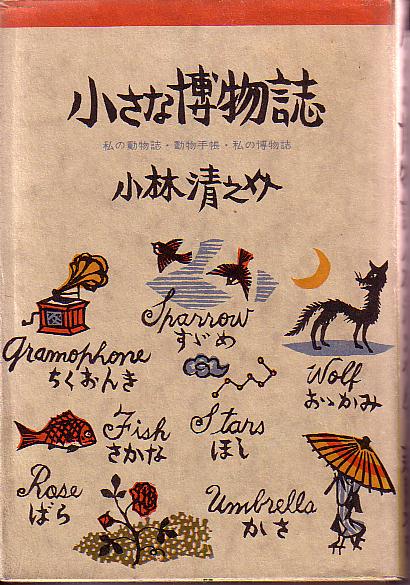 小さな博物誌
私の動物誌・動物手帳・私の博物誌
小林清之介
Sparrow
すゞめ
Gramophone
ちくおんき
Wolf
おゝかみ
Fish
さかな
Stars
ほし
Rose
ばら
Umbrella
かさ